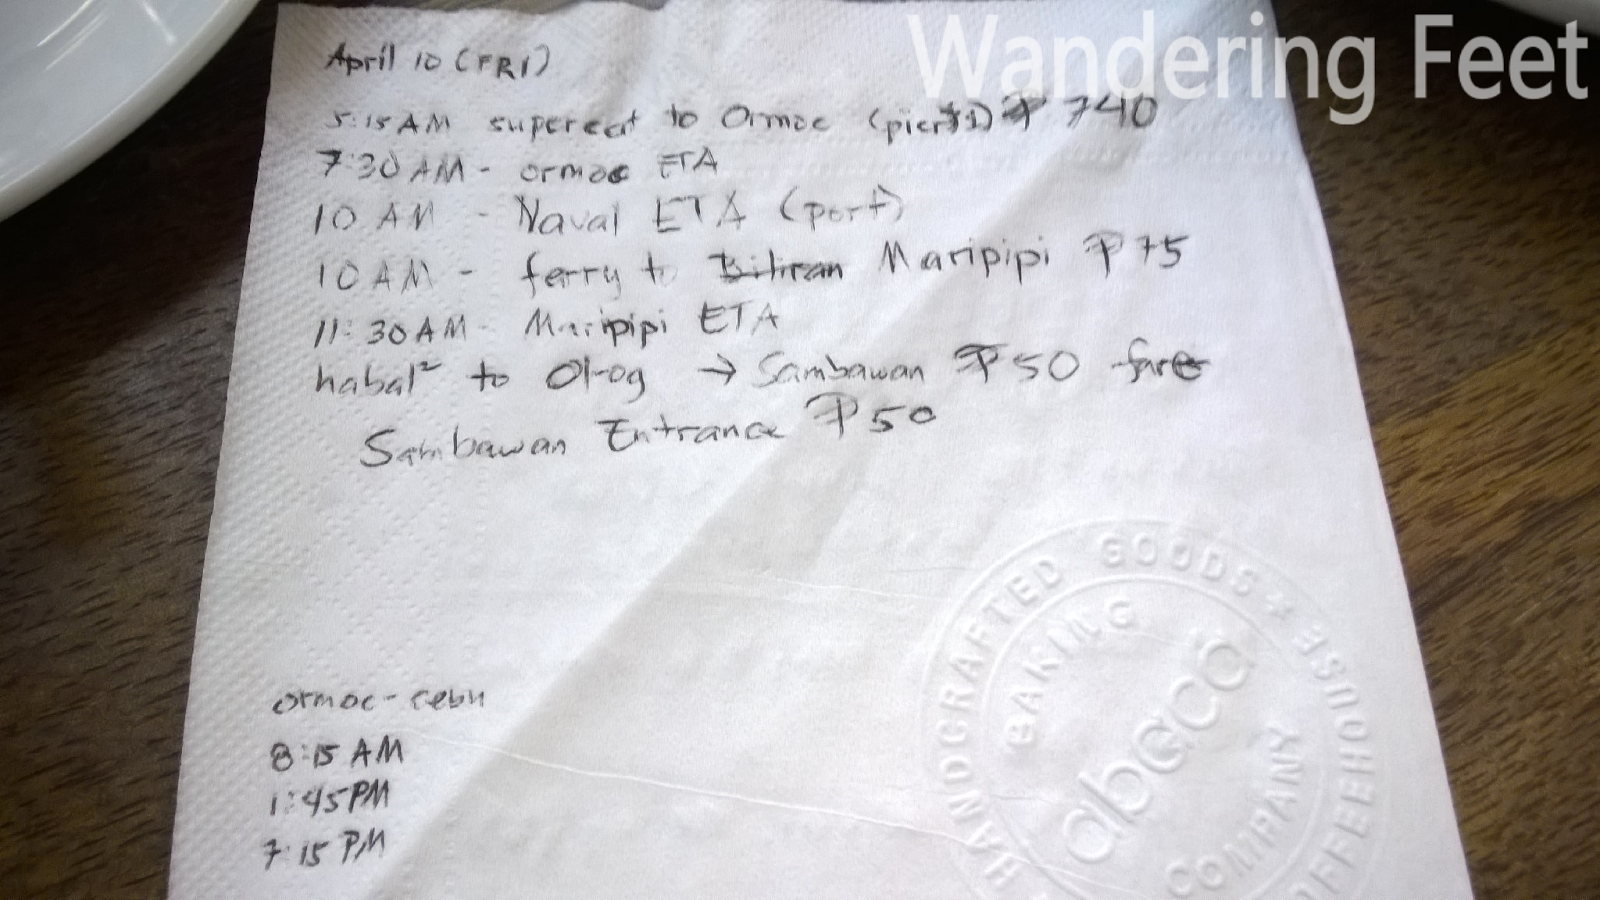 Wandering Feet
April 10 (FRI)
5:15AM supercat to Ormoc (pier #1) ₱ 740
7:30AM - ormoc ETA
10 AM - Naval ETA (port)
10AM - ferry to Biliran Maripipi ₱75
11:30AM - Maripipi ETA
habal² to Ol-og → Sambawan ₱50 fare
Sambawan Entrance ₱50
ormoc - cebu
8:15 AM
1:45PM
7:15 PM
HANDCRAFTED GOODS * COFFEEHOUSE
abaca
BAKING COMPANY